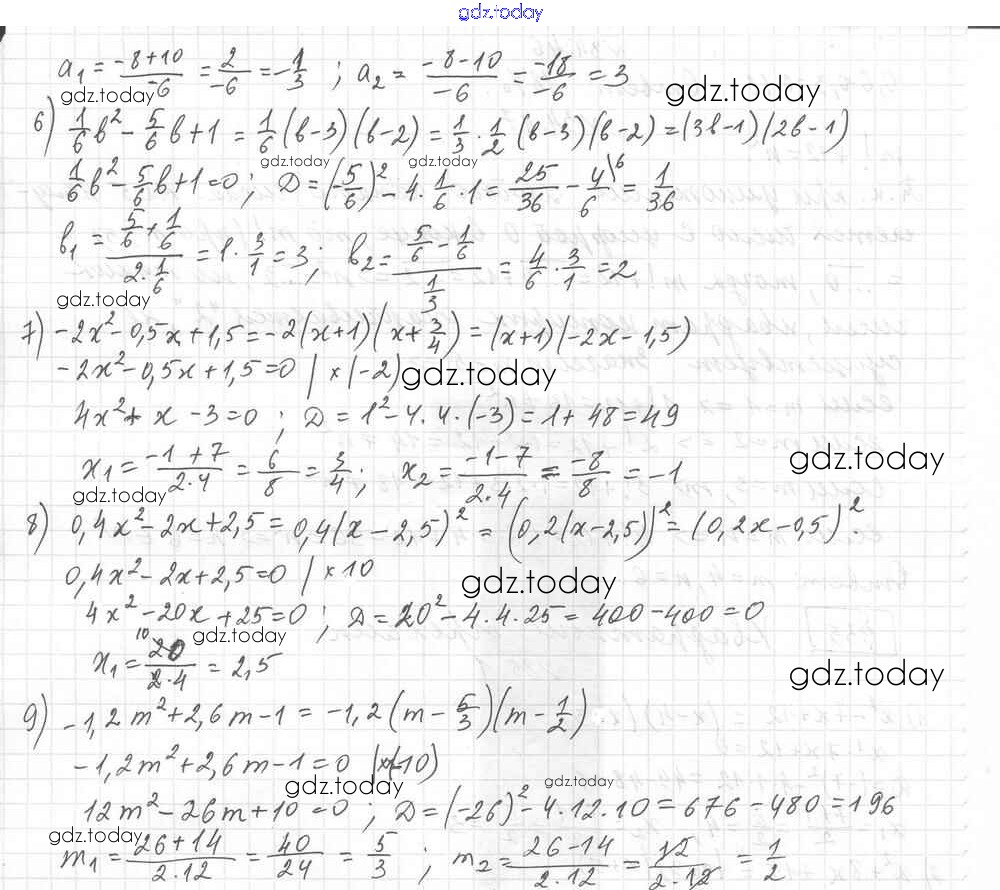 gdz.today
a₁ = (-8+10)/(-6) = 2/(-6) = -1/3 ; a₂ = (-8-10)/(-6) = (-18)/(-6) = 3
gdz.today gdz.today
6) 1/6 b² - 5/6 b + 1 = 1/6 (b-3)(b-2) = 1/3 · 1/2 (b-3)(b-2) = (3b-1)(2b-1)
gdz.today gdz.today
1/6 b² - 5/6 b + 1 = 0 ; D = (-5/6)² - 4 · 1/6 · 1 = 25/36 - 4/6 \6 = 1/36
b₁ = (5/6 + 1/6)/(2 · 1/6) = 1 · 3/1 = 3 ; b₂ = (5/6 - 1/6)/(1/3) = 4/6 · 3/1 = 2
gdz.today
7) -2x² - 0,5x + 1,5 = -2(x+1)(x + 3/4) = (x+1)(-2x - 1,5)
-2x² - 0,5x + 1,5 = 0 | × (-2)
gdz.today
4x² + x - 3 = 0 ; D = 1² - 4 · 4 · (-3) = 1 + 48 = 49
x₁ = (-1+7)/(2·4) = 6/8 = 3/4 ; x₂ = (-1-7)/(2·4) = (-8)/8 = -1
gdz.today gdz.today
8) 0,4x² - 2x + 2,5 = 0,4(x - 2,5)² = (0,2(x-2,5))² = (0,2x - 0,5)²
0,4x² - 2x + 2,5 = 0 | × 10
gdz.today
4x² - 20x + 25 = 0 ; D = 20² - 4 · 4 · 25 = 400 - 400 = 0
gdz.today
x₁ = 20 10/(2·4) = 2,5
gdz.today
9) -1,2m² + 2,6m - 1 = -1,2(m - 5/3)(m - 1/2)
-1,2m² + 2,6m - 1 = 0 | × (-10)
gdz.today gdz.today
12m² - 26m + 10 = 0 ; D = (-26)² - 4 · 12 · 10 = 676 - 480 = 196
gdz.today
m₁ = (26+14)/(2·12) = 40/24 = 5/3 ; m₂ = (26-14)/(2·12) = 12/(2·12) = 1/2